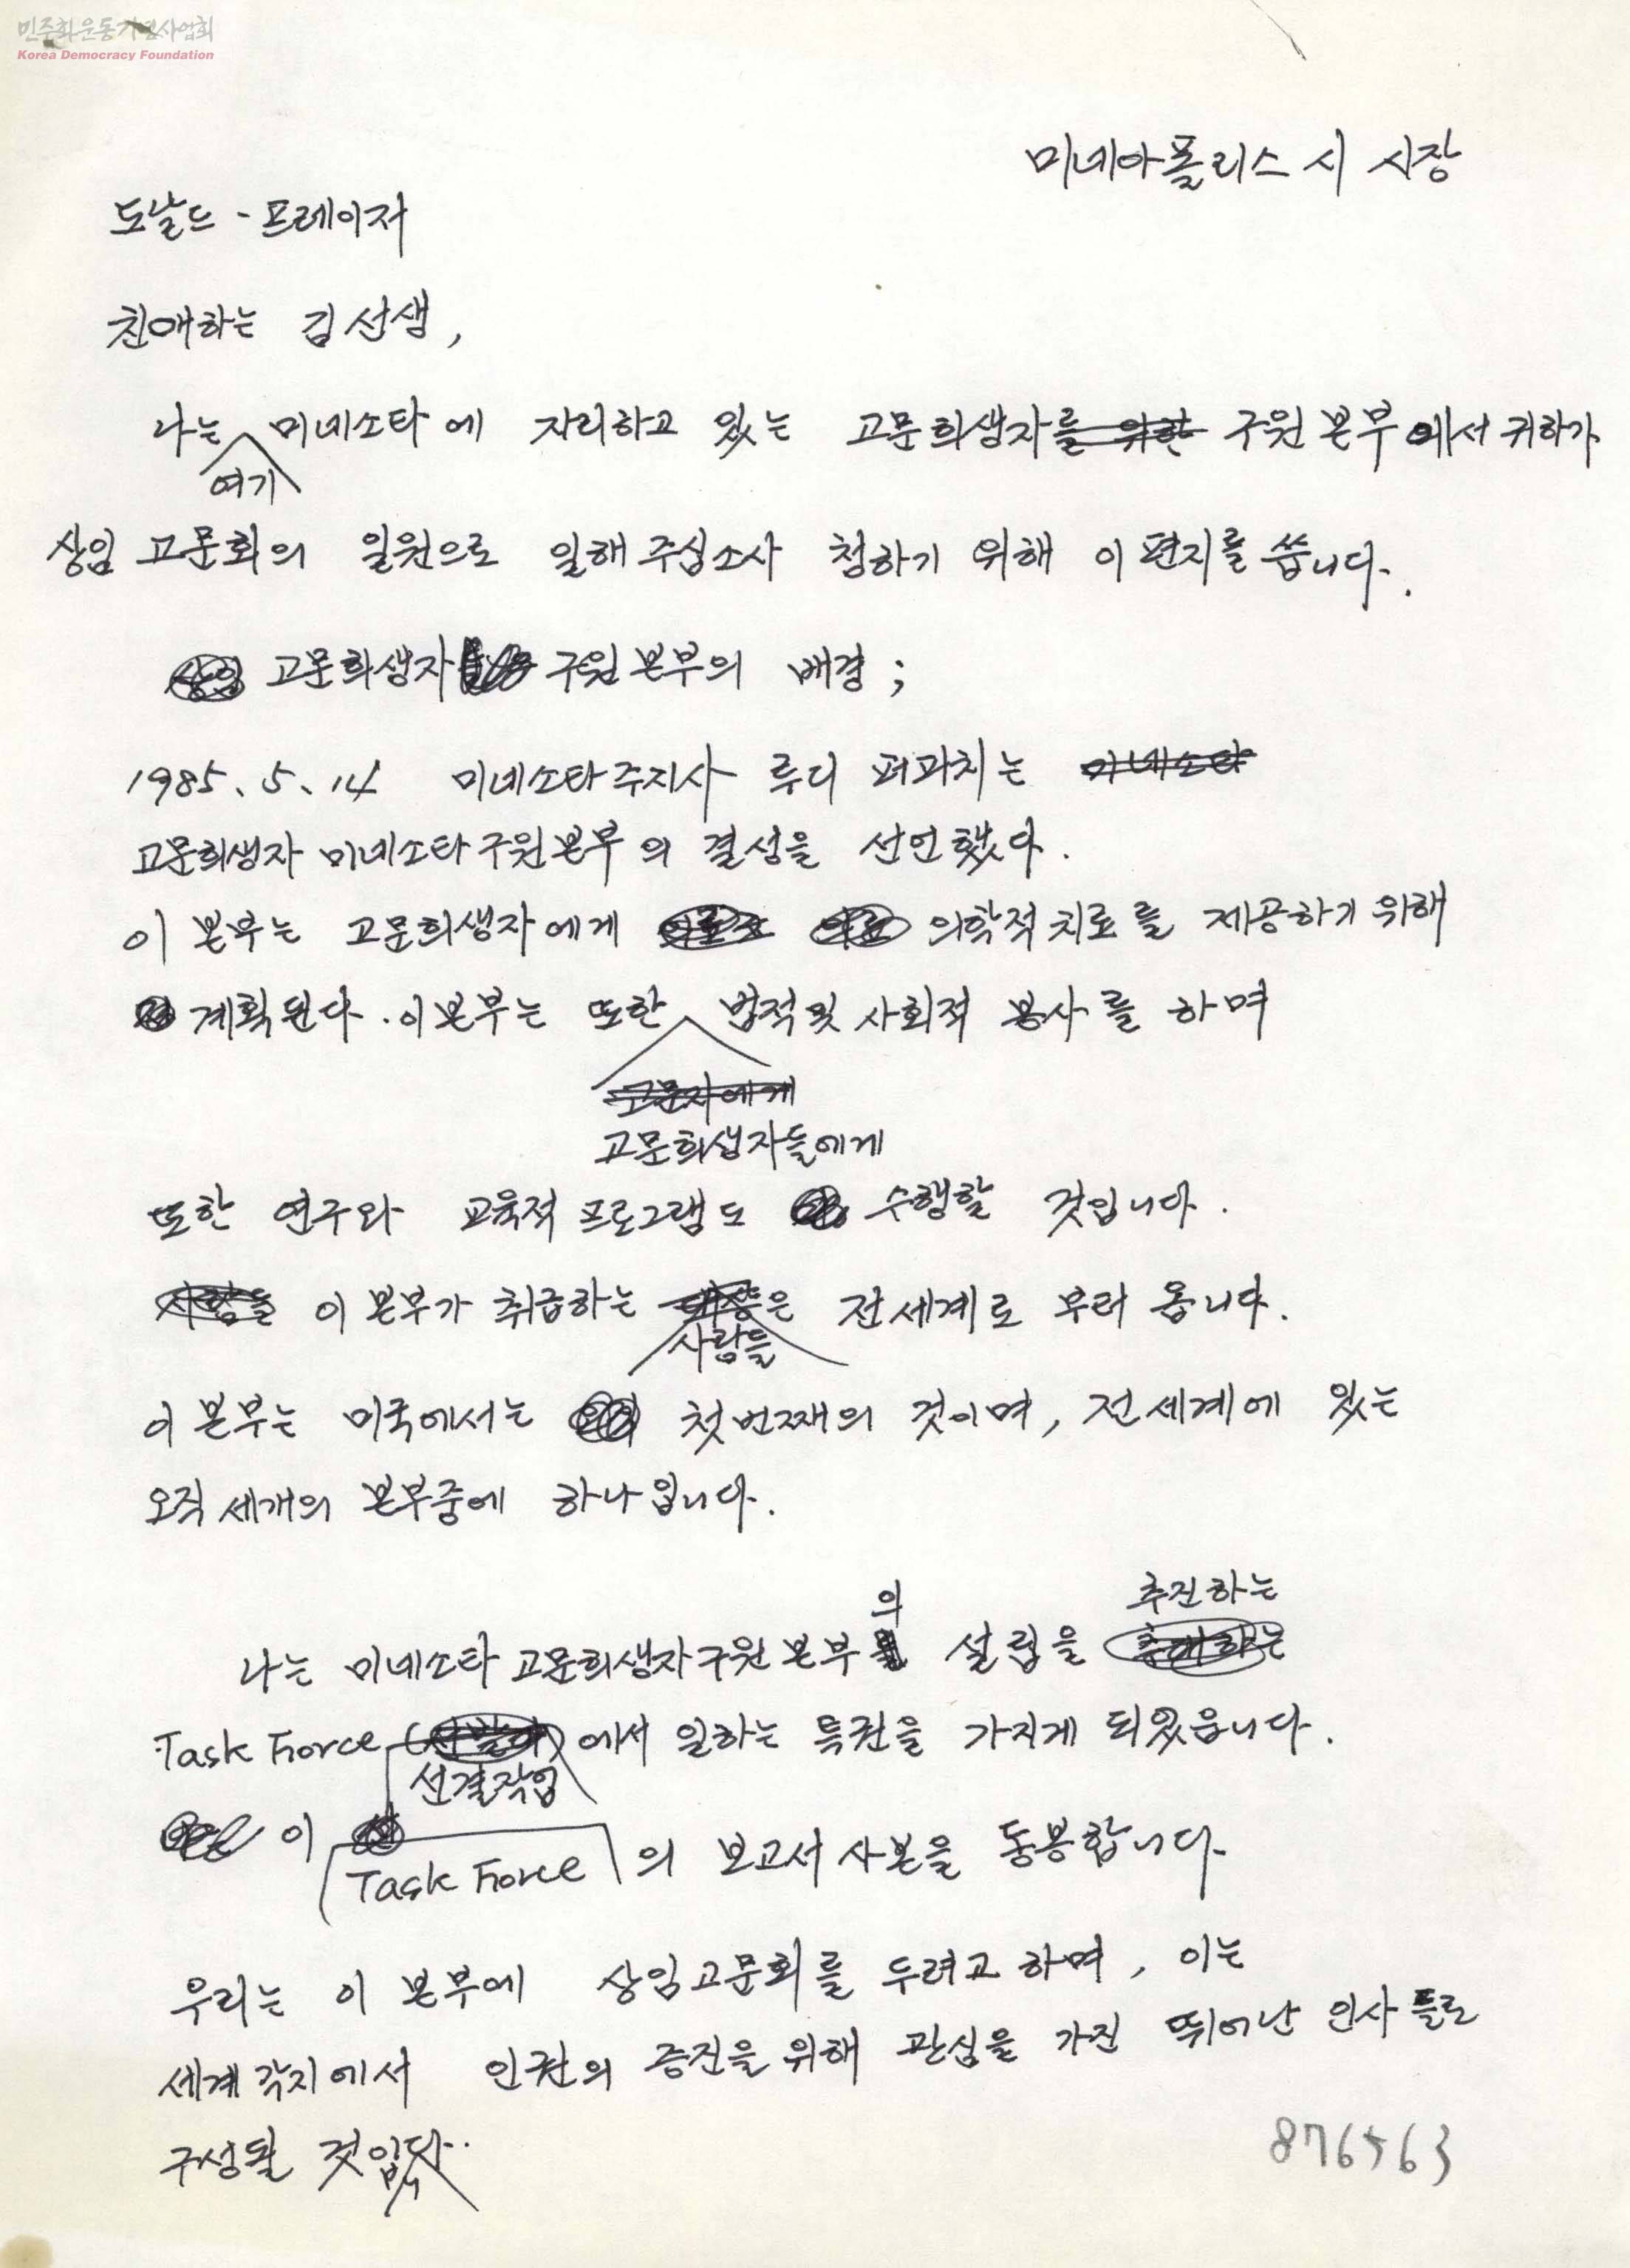 민주화운동기념사업회
Korea Democracy Foundation
미네아폴리스 시 시장
도날드 - 프레이저
친애하는 김선생,
나는 미네소타에 자리하고 있는 고문희생자를 위한 구원본부에서 귀하가
여기
상임 고문회의 일원으로 일해주십소사 청하기 위해 이 편지를 씁니다.
고문희생자 구원본부의 배경;
1985. 5. 14 미네소타주지사 루디 퍼파치는 미네소타
고문희생자 미네소타구원본부의 결성을 선언했다.
이 본부는 고문희생자에게 의학적치료를 제공하기 위해
계획된다. 이본부는 또한 법적및 사회적 봉사를 하며
고문자에게
고문희생자들에게
또한 연구와 교육적 프로그램도 수행할 것입니다.
사람들 이 본부가 취급하는 대상은 전세계로 부터 옵니다.
사람들
이 본부는 미국에서는 첫번째의 것이며, 전세계에 있는
오직 세개의 본부중에 하나입니다.
의 추진하는
나는 미네소타 고문희생자구원본부 설립을
Task Force 에서 일하는 특권을 가지게 되었읍니다.
선결작업
이
Task Force 의 보고서 사본을 동봉합니다.
우리는 이 본부에 상임고문회를 두려고 하며, 이는
세계각지에서 인권의 증진을 위해 관심을 가진 뛰어난 인사들로
구성될 것입니다.
876563